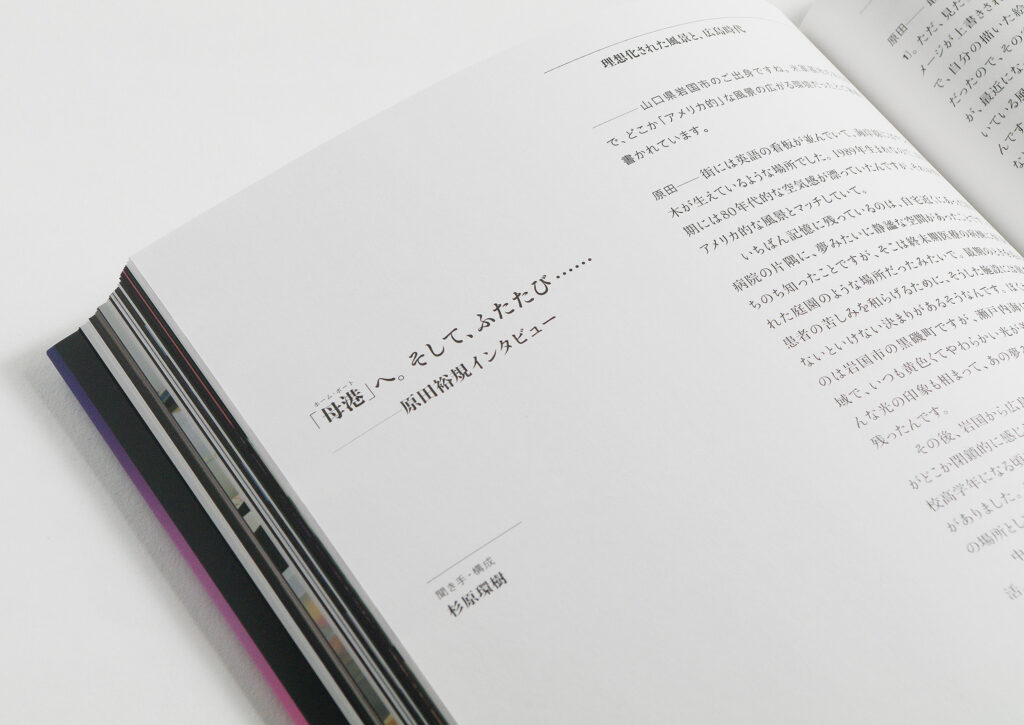 ホーム・ポート
「母港」へ。そして、ふたたび……
——原田裕規インタビュー
聞き手・構成
杉原環樹
理想化された風景と、広島時代
——山口県岩国市のご出身ですね。
で、どこか「アメリカ的」な風景の広がる環境だった
書かれています。
原田——街には英語の看板が並んでいて、
木が生えているような場所でした。1989年生まれなので
期には80年代的な空気感が漂っていたんですが、
アメリカ的な風景とマッチしていて。
いちばん記憶に残っているのは、自宅近くにあった
病院の片隅に、夢みたいに静謐な空間があったことで
ちのち知ったことですが、そこは終末期医療の病棟に
れた庭園のような場所だったみたいで。
患者の苦しみを和らげるために、そうした施設には
ないといけない決まりがあるそうなんです。
のは岩国市の黒磯町ですが、瀬戸内海
域で、いつも黄色くてやわらかい光が
んな光の印象も相まって、あの夢
残ったんです。
その後、岩国から広
がどこか閉鎖的に感じ
校高学年になる頃
がありました。
の場所とし
中
活
原田——
1)。ただ、見た
メージが上書きされ
で、自分の描いた絵
だったので、その
が、最近にな
いている風
んです
な